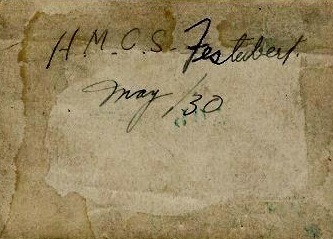 H.M.C.S. Festubert.
May/30